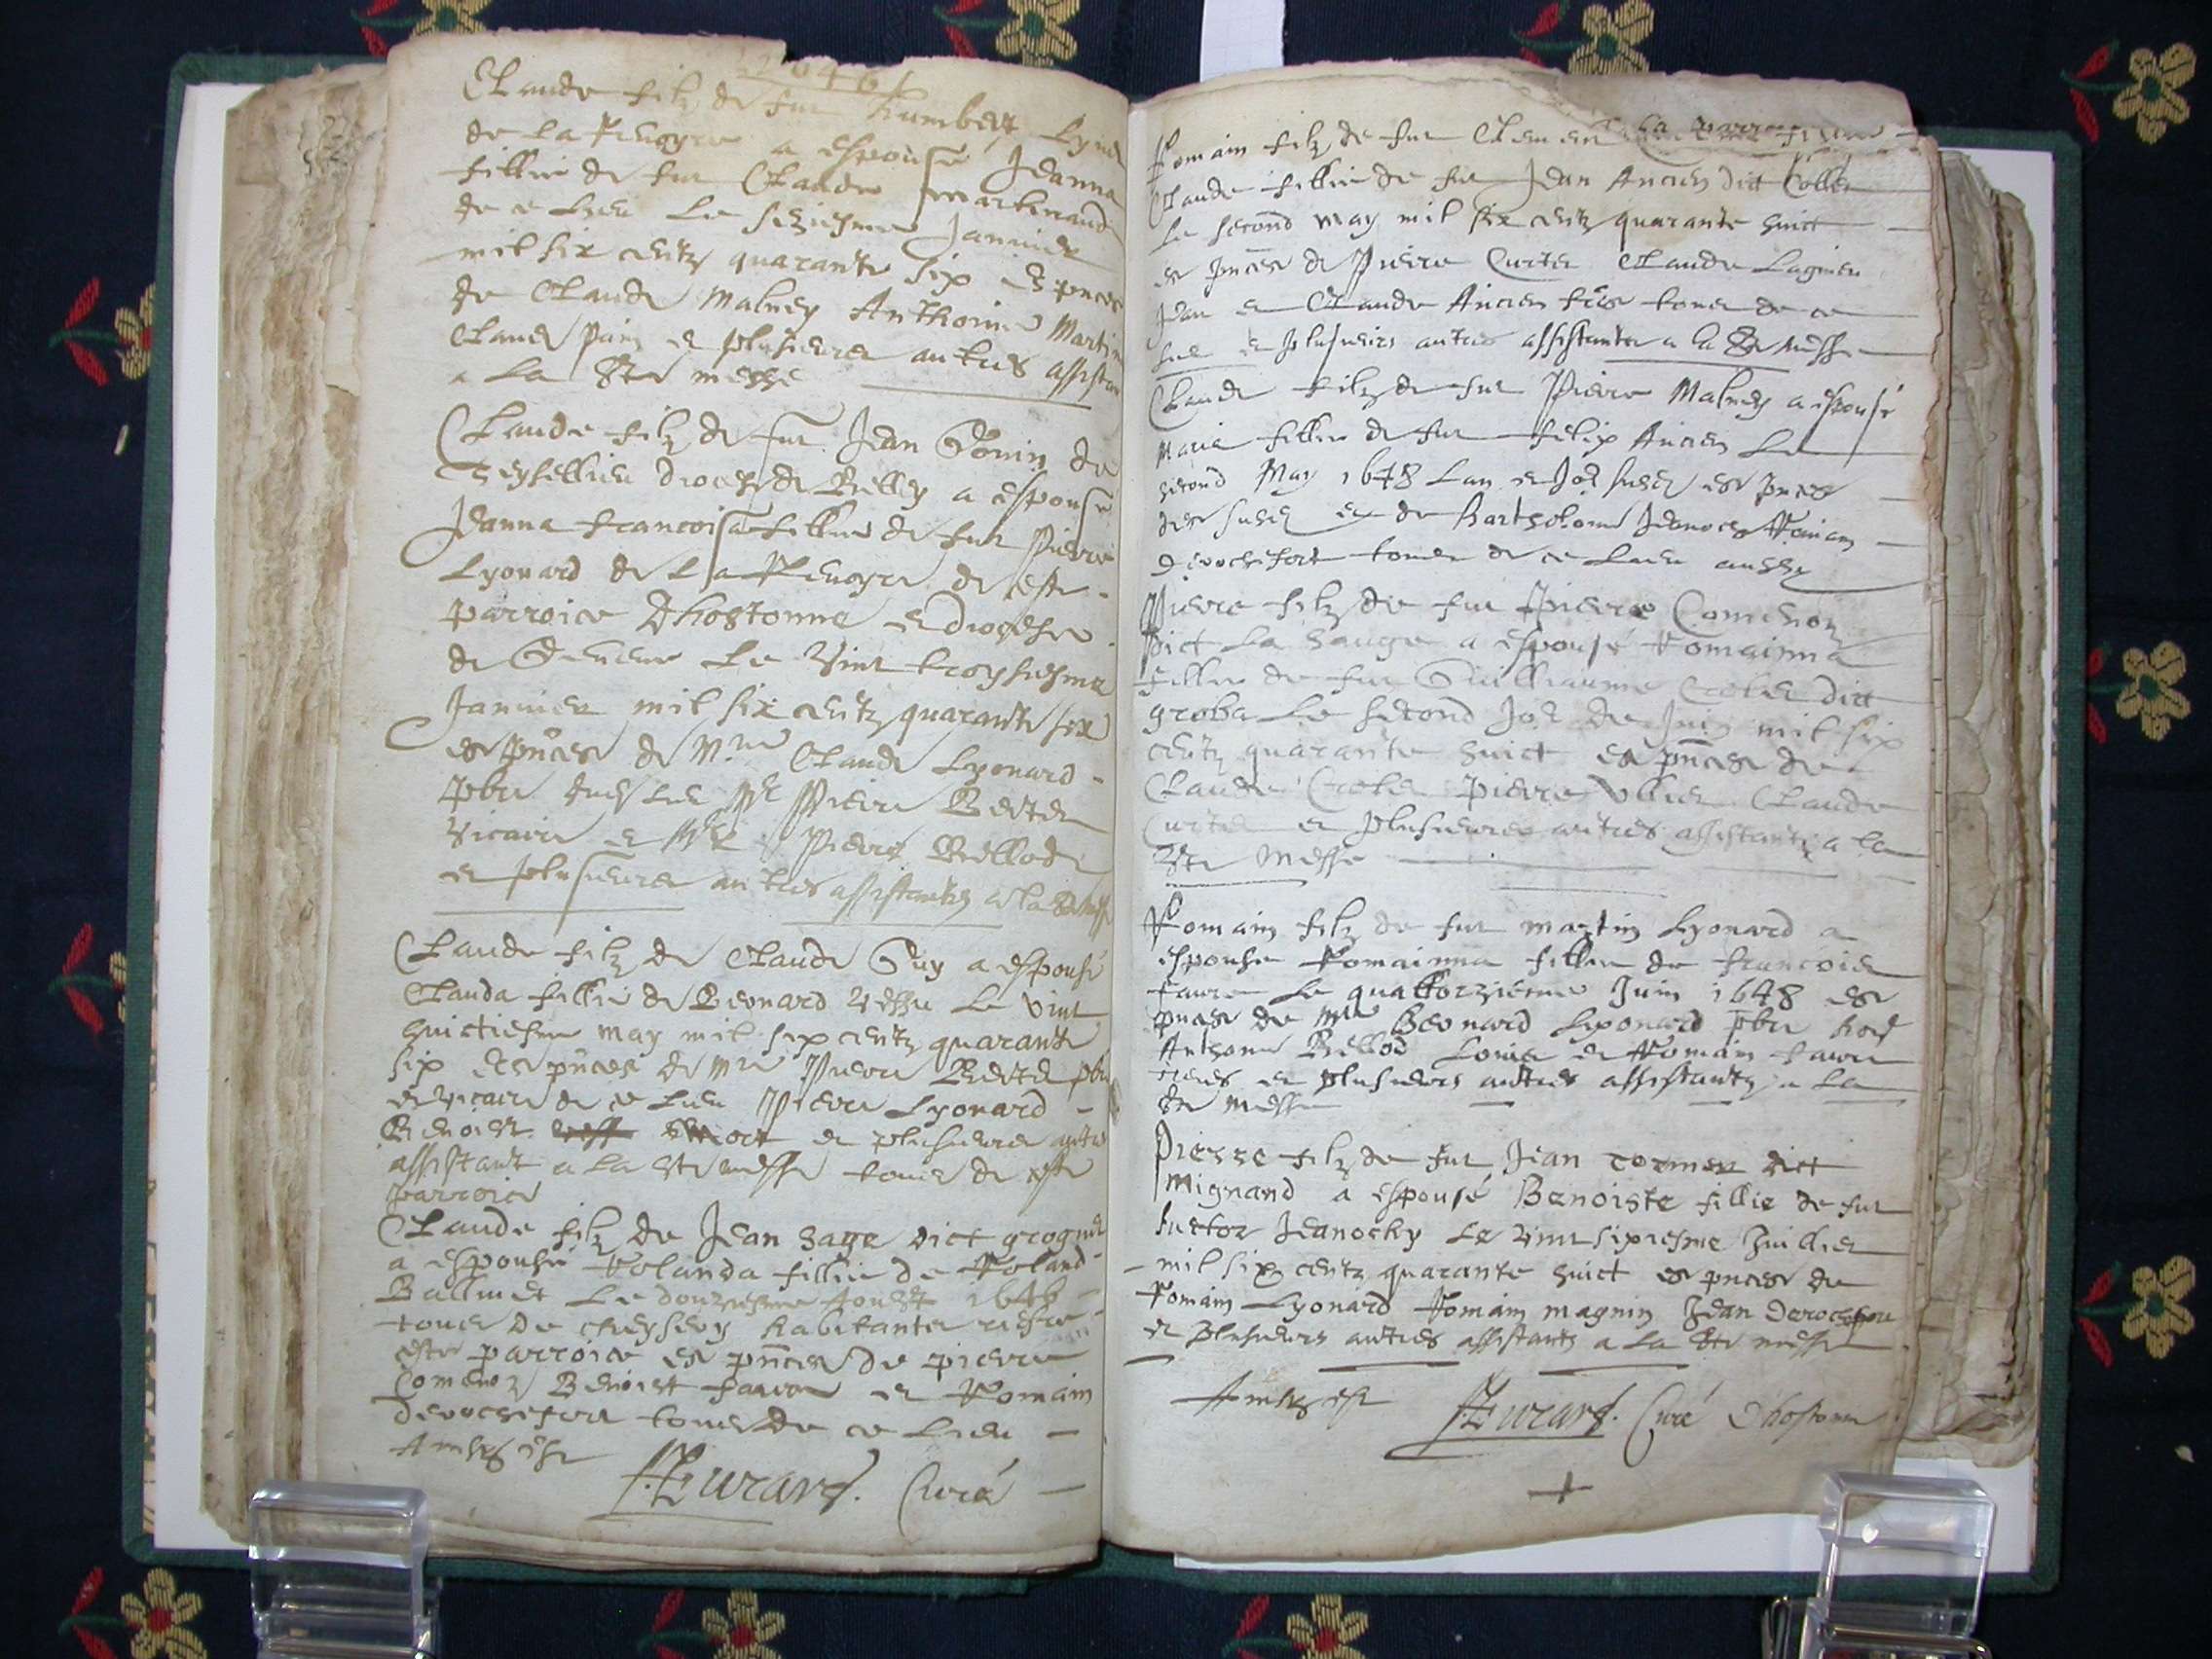 1646
Claude filz de fut Humbert
de la a espouse Jeanna
fillie de fut Claude Martinand
de ce lieu le seziesme Janvier
mil six centz quarante six es pnces
de Claude Malney Anthoine Martin
Claude Pain et plusieurs autres assistan
a la Ste messe
Claude filz de fut Jean Gonin de
Seyssellieu diocese de Belley a espouse
Jeanna francoisa fillie de fut Pierre
Lyonard de la de ceste
parroice Dhostonne et diocese
de Geneve le vint troysiesme
Janvier mil six centz quarante six
es pnces de Mre Claude Lyonard
pbre Mre Pierre Bertet
vicaire et Mre Pierre Bellod
et plusieurs autres assistantz a la Ste messe
Claude filz de Claude Guy a espousé
Clauda fillie de Bernard le vint
huictiesme may mil six centz quarante
six es pnces de Mre Pierre Bertet pbre
et vicaire de ce lieu Pierre Lyonard
Benoist et plusieurs autres
assistant a la Ste messe touts de ceste
parroice
Claude filz de Jean Sage dict grognet
a espousé Rolanda fillie de Roland
Ballivet le douziesme Aoust 1646
touts de Cheysery habitants riesre
ceste parroice es pnces de pierre
Comenoz Benoist favre et Romain
Derochefort touts de ce lieu
Ainsy est
Curé
Romain filz de fut Clement la parroisse
Claude fillie de fut Jean Ancien dict Collet
le second may mil six centz quarante huict
es pnces de Pierre Curtet Claude Lagnieu
Jean et Claude Ancien frères touts de ce
lieu et plusieurs autres assistants a la Ste messe
Claude filz de fut Pierre Malney a espousé
Marie fillie de fut felix Ancien le
second May 1648 lan et Jor susd es pnces
des susd et de Bartholome Jeanoct Romain
Derochefort touts de ce lieu aussy
Pierre filz de fut Pierre Comenoz
dict la sauge a espousé Romainna
fillie de fut Guilliaume Crolet dict
groba le second Jor de Juin mil six
centz quarante huict es pnces de
Claude Crolet Pierre Vllier Claude
Curtet et plusieurs autres assistantz a la
Ste Messe
Romain filz de fut martin Lyonard a
espouse Romainna fillie de francois
favre le quattorziesme Juin 1648 es
pnces de Mre Bernard Lyonard pbre
Anthoine Bellod Louis et Romain favre
freres et plusieurs autres assistantz a la
Ste messe
Pierre filz de fut Jean Tormen dict
Mignand a espousé Benoiste fillie de fut
Suctor Jeanochy le vint sixiesme Juillet
mil six centz quarante huict es pnces de
Romain Lyonard Romain magnin Jean Derochefort
et plusieurs autres assistants a la Ste messe
Ainsy est
Curé Dhostonne